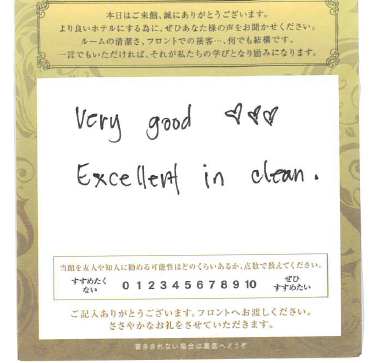 本日はご来館、誠にありがとうございます。
より良いホテルにする為に、ぜひあなた様の声をお聞かせください。
ルームの清潔さ、フロントでの接客…、何でも結構です。
一言でもいただければ、それが私たちの学びとなり励みになります。
Very good ♡♡♡
Excellent in clean.
当館を友人や知人に勧める可能性はどのくらいあるか、点数で教えてください。
すすめたくない 0 1 2 3 4 5 6 7 8 9 10 ぜひすすめたい
ご記入ありがとうございます。フロントへお渡しください。
ささやかなお礼をさせていただきます。
書ききれない場合は裏面へどうぞ